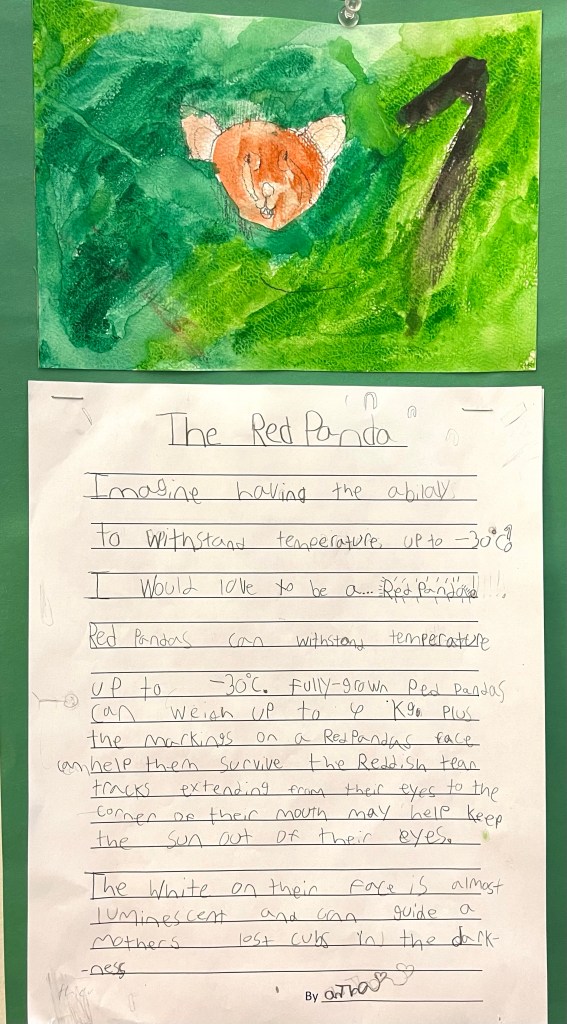 The Red Panda
Imagine having the abilaty
to withstand temperature up to -30°C?
I would love to be a... Red Panda!!!
Red Pandas can withstand temperature
up to -30°C. Fully-grown Red Pandas
can weigh up to 4 Kg. Plus
the markings on a Red Pandas face
can help them survive the Reddish tear
tracks extending from their eyes to the
corner of their mouth may help keep
the sun out of their eyes.
The white on their face is almost
luminescent and can guide a
mothers lost cubs in the dark-
-ness
By